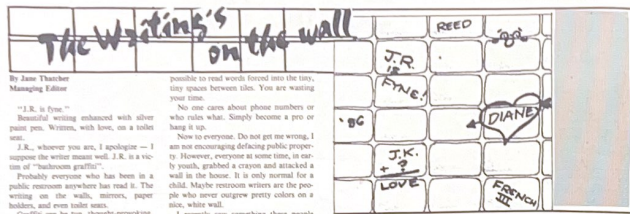 The Writing's
on the wall
By Jane Thatcher
Managing Editor
"J.R. is fyne."
Beautiful writing enhanced with silver
paint pen. Written, with love, on a toilet
seat.
J.R., whoever you are, I apologize — I
suppose the writer meant well. J.R. is a vic-
tim of "bathroom graffiti".
Probably everyone who has been in a
public restroom anywhere has read it. The
writing on the walls, mirrors, paper
holders, and even toilet seats.
possible to read words forced into the tiny,
tiny spaces between tiles. You are wasting
your time.
No one cares about phone numbers or
who rules what. Simply become a pro or
hang it up.
Now to everyone. Do not get me wrong, I
am not encouraging defacing public proper-
ty. However, everyone at some time, in ear-
ly youth, grabbed a crayon and attacked a
wall in the house. It is only normal for a
child. Maybe restroom writers are the peo-
ple who never outgrew pretty colors on a
nice, white wall.
REED
J.R.
is
FYNE!
'86
DIANE
J.K.
+ ?
LOVE
FRENCH
III